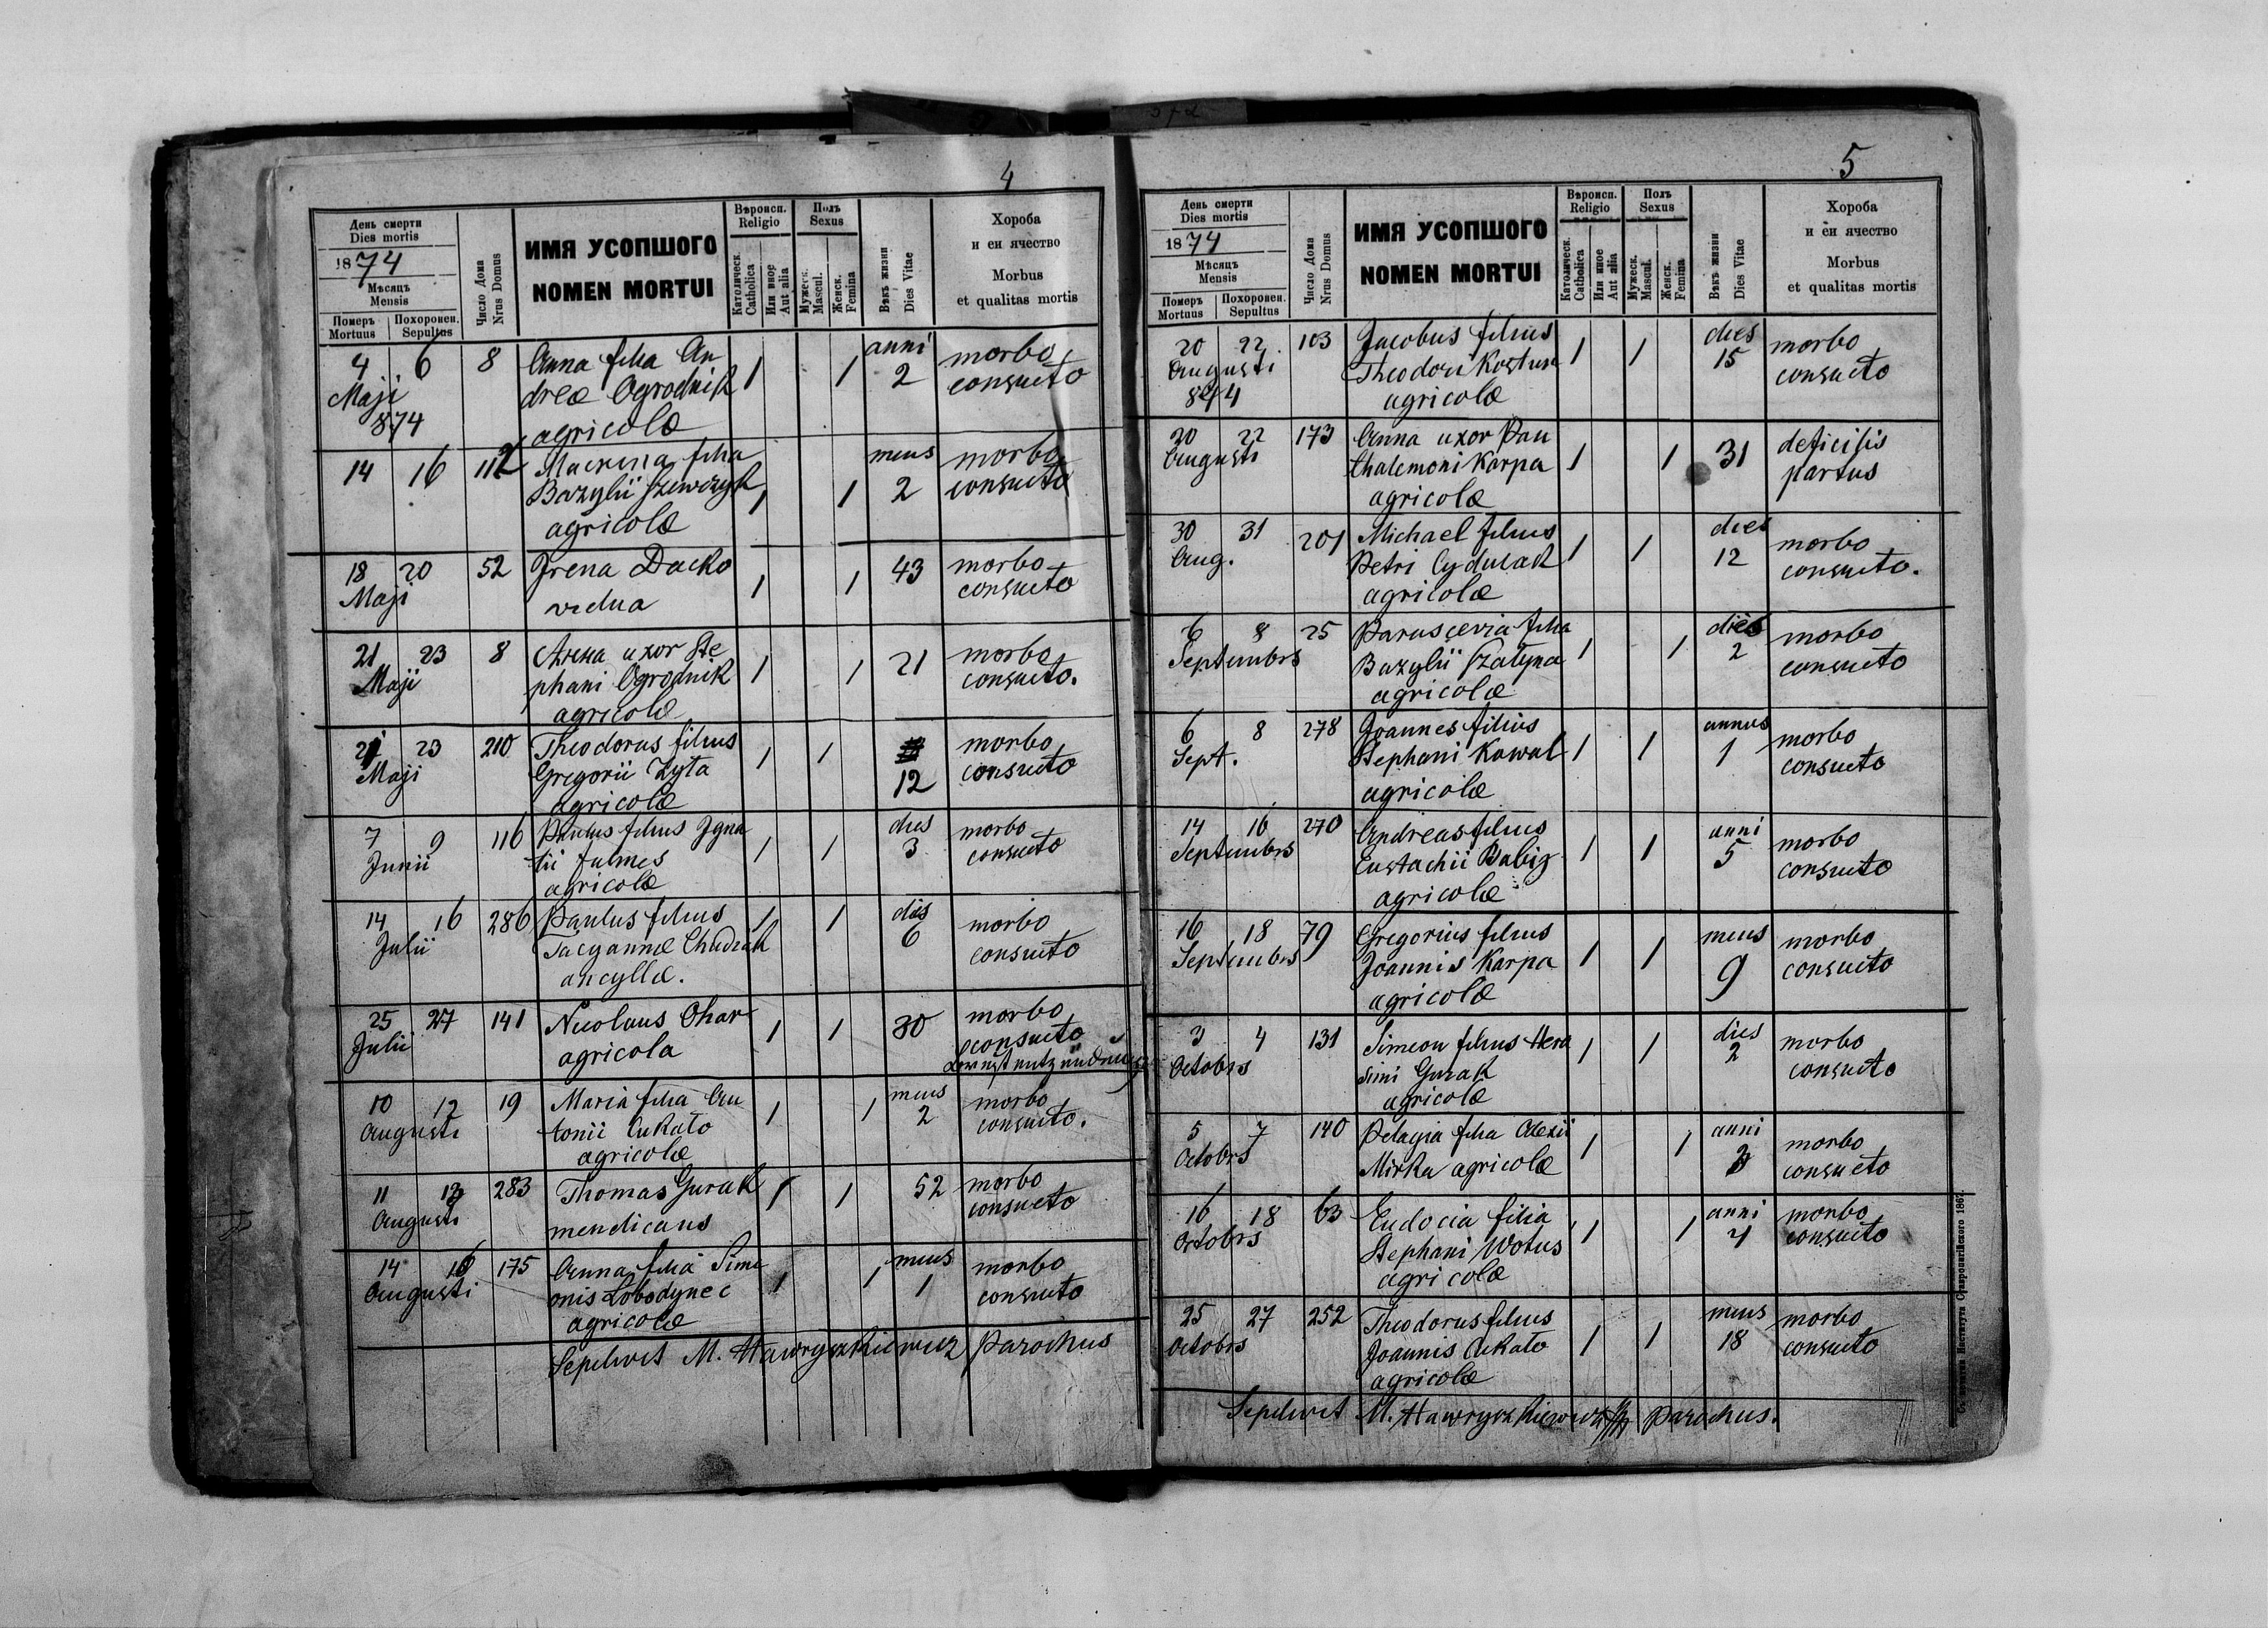 4
День смерти
Dies mortis
1874
Мѣсяцъ
Mensis
Померъ
Mortuus
Похоронен.
Sepultus
Число Дома
Nrus Domus
ИМЯ УСОПШОГО
NOMEN MORTUI
Вѣроисп.
Religio
Католическ.
Catholica
Или иное
Aut alia
Полъ
Sexus
Мужеск.
Mascul.
Женск.
Femina
Вѣкъ жизни
Dies Vitae
Хороба
и еи ячество
Morbus
et qualitas mortis
4 6 8 Anna filia An 1 1 anni morbo
Maji dreæ Ogrodnik 2 consueto
874 agricolæ
14 16 112 Macrina filia mens morbo
Bazylii Szewczyk 1 1 2 consueto
agricolæ
18 20 52 Irena Dacko 1 1 43 morbo
Maji vidua consueto
21 23 8 Anna uxor Ste 1 1 21 morbo
Maji phani Ogrodnik consueto.
agricolæ
21 23 210 Theodorus filius 1 1 morbo
Maji Gregorii Zyta 12 consueto
agricolæ
7 9 116 Paulus filius Igna 1 1 dies morbo
Junii tii Julmes 3 consueto
agricolæ
14 16 286 Paulus filius 1 1 dies morbo
Julii Tacyannæ Chudzak 6 consueto
ancyllæ.
25 27 141 Nicolaus Ohar 1 1 30 morbo
Julii agricola consueto
10 12 19 Maria filia An 1 1 mens morbo
Augusti tonii Cukato 2 consueto.
agricolæ
11 13 283 Thomas Gurak 1 1 52 morbo
Augusti mendicans consueto
14 16 175 Anna filia Sime 1 1 mens morbo
Augusti onis Łobodynec 1 consueto
agricolæ
Sepelivit M. Hawryszkiewicz Parochus
5
День смерти
Dies mortis
1874
Мѣсяцъ
Mensis
Померъ
Mortuus
Похоронен.
Sepultus
Число Дома
Nrus Domus
ИМЯ УСОПШОГО
NOMEN MORTUI
Вѣроисп.
Religio
Католическ.
Catholica
Или иное
Aut alia
Полъ
Sexus
Мужеск.
Mascul.
Женск.
Femina
Вѣкъ жизни
Dies Vitae
Хороба
и еи ячество
Morbus
et qualitas mortis
20 22 103 Jacobus filius 1 1 dies morbo
Augusti Theodori Kostura 15 consueto
874 agricolæ
20 22 173 Anna uxor Pan 1 1 31 deficisis
Augusti thalemoni Karpa partus
agricolæ
30 31 201 Michael filius 1 1 dies morbo
Aug. Petri Cydulak 12 consueto.
agricolæ
6 8 25 Parascevia filia 1 1 dies morbo
Septembris Bazylii Szatyna 2 consueto
agricolæ
6 8 278 Joannes filius 1 1 annus morbo
Sept. Stephani Kowal 1 consueto
agricolæ
14 16 270 Andreas filius 1 1 anni morbo
Septembris Eustachii Babiy 5 consueto
agricolæ
16 18 79 Gregorius filius 1 1 mens morbo
Septembris Joannis Karpa 9 consueto
agricolæ
3 4 131 Simeon filius Hera 1 1 dies morbo
Octobris simi Gurak 2 consueto
agricolæ
5 7 140 Pelagia filia Alexii 1 1 anni morbo
Octobris Mirka agricolæ 3 consueto
16 18 63 Eudocia filia 1 1 anni morbo
Octobris Stephani Wotus 4 consueto
agricolæ
25 27 252 Theodorus filius 1 1 mens morbo
Octobris Joannis Cukato 18 consueto
agricolæ
Sepelivit M. Hawryszkiewicz Parochus.